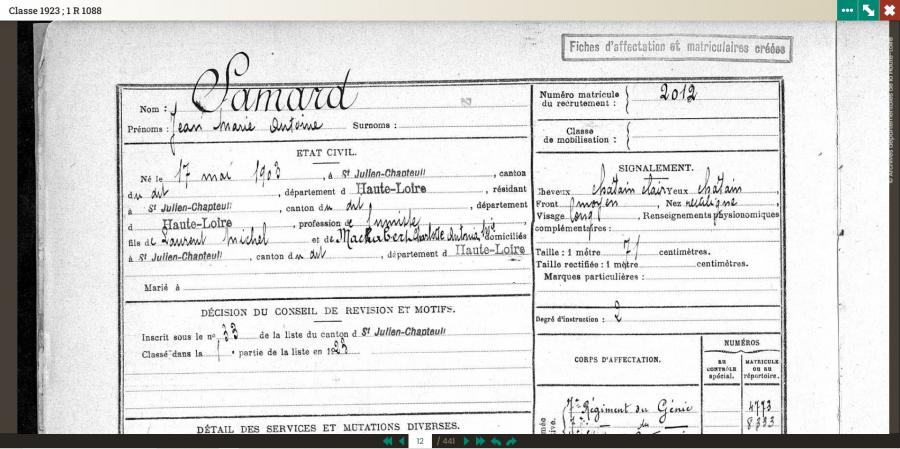 Classe 1923 ; 1 R 1088
Fiches d'affectation et matriculaires créées
Nom : Samard
Prénoms : Jean Marie Antoine Surnoms :
ETAT CIVIL.
Né le 17 mai 1903, à St Julien-Chapteuil, canton
du dit, département d Haute-Loire, résidant
à St Julien-Chapteuil, canton du dit, département
d Haute-Loire, profession de fumiste
fils de Laurent Michel et de Charlotte Antonia domiciliés
à St Julien-Chapteuil, canton du dit, département d Haute-Loire
Marié à
DÉCISION DU CONSEIL DE REVISION ET MOTIFS.
Inscrit sous le no 33 de la liste du canton d St Julien-Chapteuil
Classé dans la 1 partie de la liste en 1923
DÉTAIL DES SERVICES ET MUTATIONS DIVERSES.
Numéro matricule
du recrutement : 2012
Classe
de mobilisation :
SIGNALEMENT.
Cheveux châtain clair Yeux châtain,
Front moyen, Nez rectiligne,
Visage long, Renseignements physionomiques
complémentaires :
Taille : 1 mètre 71 centimètres.
Taille rectifiée : 1 mètre centimètres.
Marques particulières :
Degré d'instruction : 2
CORPS D'AFFECTATION.
NUMÉROS
AU CONTRÔLE spécial.
MATRICULE OU AU répertoire.
7e Régiment du Génie 4773
du 8333
12 / 441